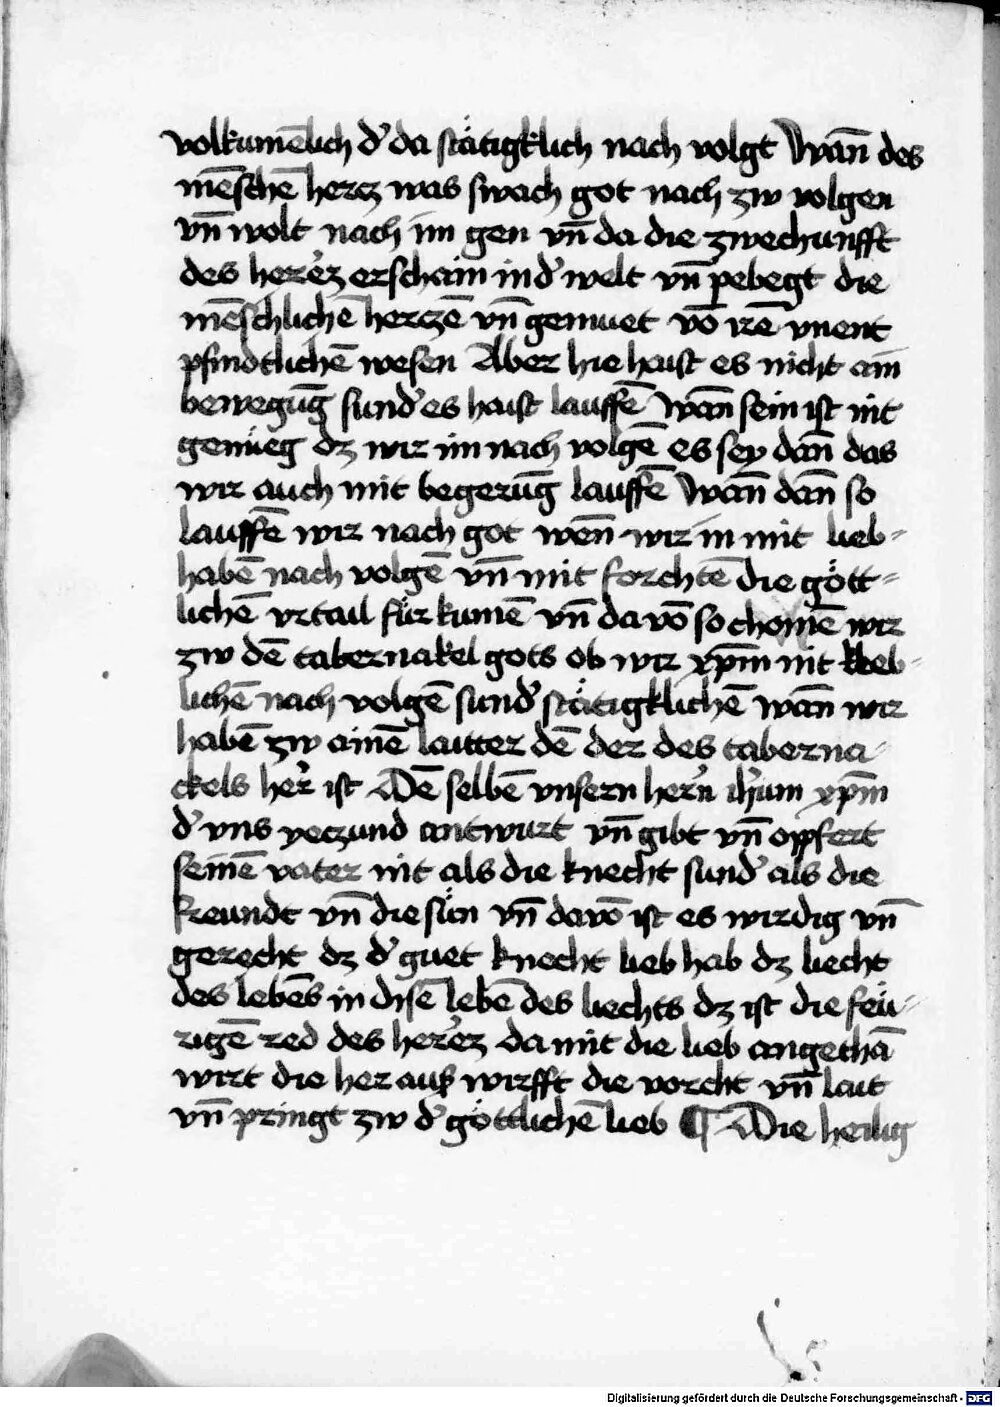 volkumēlich d' da stätigklich nach volgt Wan̄ des
mēschē hercz was swach got nach zw volgen
vn̄ wolt nach im gen vn̄ da die zwechunfft
des herez erschain in d' welt vn̄ pebegt die
mēschlichē herczē vn̄ gemuet vō irē vnent
pfindtlichē wesen Aber hie haist es nicht ain
bewegūg sund' es haist lauffē Wan̄ sein ist nit
genueg dz wir im nach volgē es sey dan̄ das
wir auch mit begerūg lauffē Wan̄ dan̄ so
lauffē wir nach got wen̄ wir in mit lieb=
habē nach volgē vn̄ mit forchtē die gött=
lichē vrtail für kumē vn̄ da vō so chomē wir
zw dē tabernakel gots ob wir xp̄m nit leb=
lichē nach volgē sund' stätigklichē wan̄ wir
habē zw ainē lautter dē der des taberna
ckels her ist Dē selbē vnsern hern̄ ih̄um xp̄m
d' vns yeczund antwurt vn̄ gibt vn̄ opfert
seinē vater nit als die knecht sund' als die
freundt vn̄ die sün vn̄ davō ist es wirdig vn̄
gerecht dz d' guet knecht lieb hab dz liecht
des lebēs in disē lebē des liechts dz ist die feü=
rigē red des herez da mit die lieb angethā
wirt die her auß wirfft die vorcht vn̄ laut
vn̄ pringt zw d' göttlichē lieb ¶ Die heilig
Digitalisierung gefördert durch die Deutsche Forschungsgemeinschaft - DFG